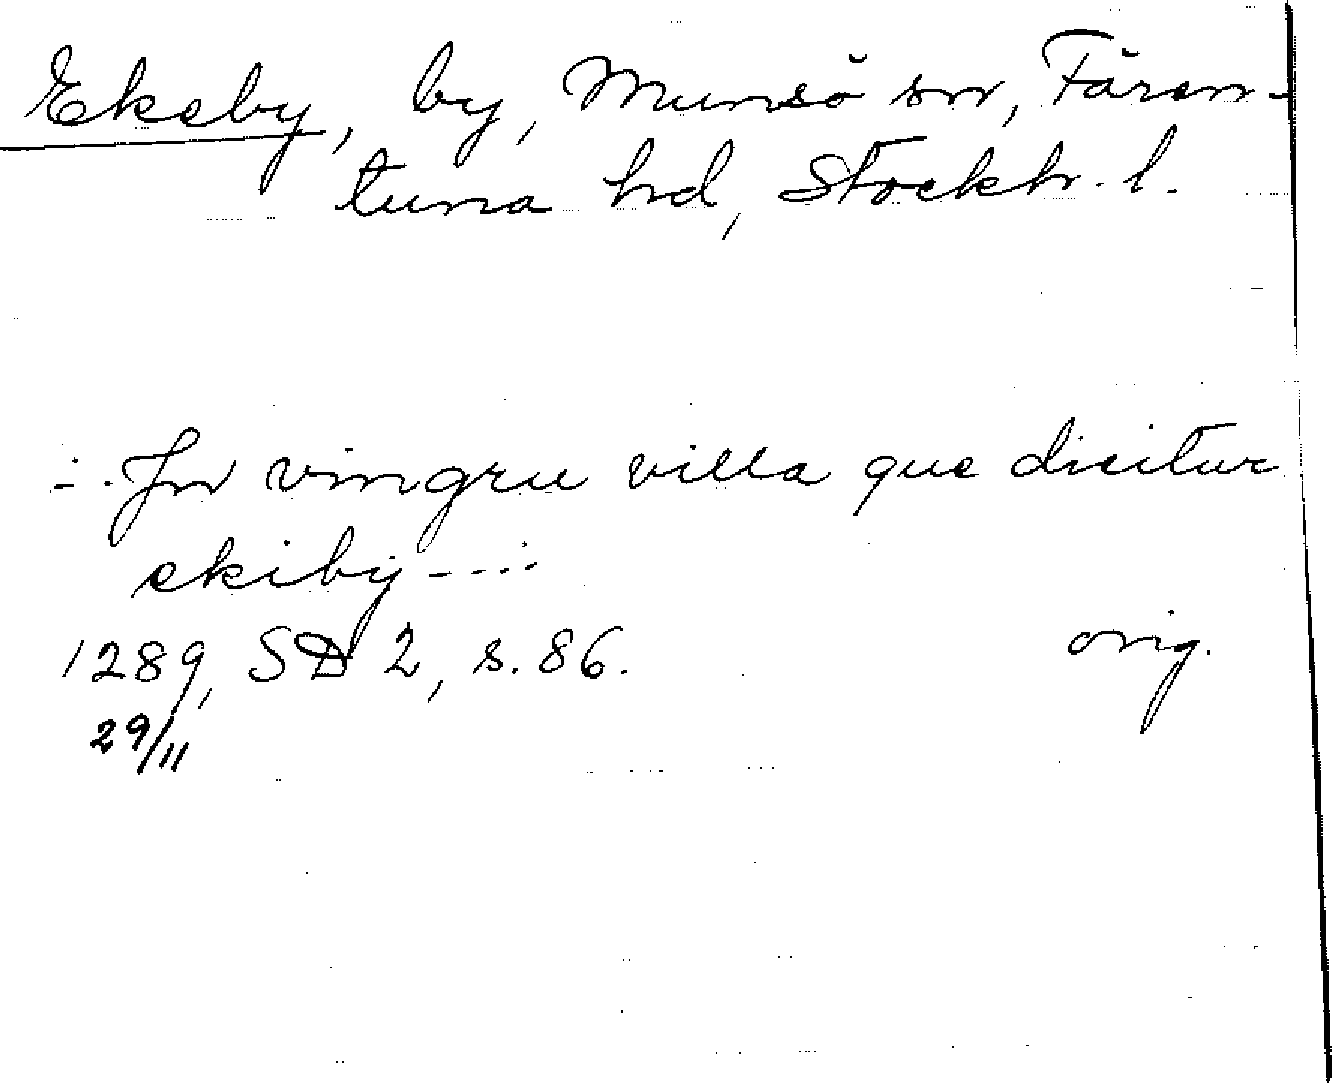 Ekeby, by, Munsö sn, Fären-
tuna hd, Stockh. l.
-:. Jn vingru villa que dicitur
ekiby --.:
1289, SD 2, s. 86. orig.
29/11